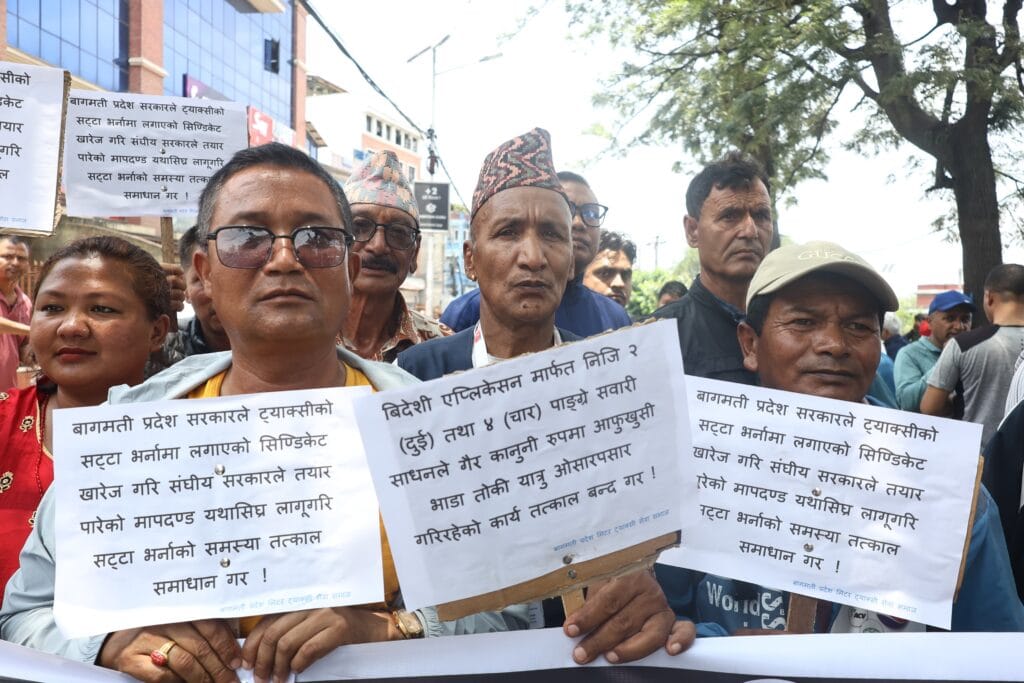 सीको
ण्डिकेट
तयार
गरि
काल
बागमती प्रदेश सरकारले ट्याक्सीको
सट्टा भर्नामा लगाएको सिण्डिकेट
खारेज गरि संघीय सरकारले तयार
पारेको मापदण्ड यथासिघ्र लागूगरि
सट्टा भर्नाको समस्या तत्काल
समाधान गर !
बागमती प्रदेश सरकारले ट्याक्सीको
सट्टा भर्नामा लगाएको सिण्डिकेट
खारेज गरि संघीय सरकारले तयार
पारेको मापदण्ड यथासिघ्र लागूगरि
सट्टा भर्नाको समस्या तत्काल
समाधान गर !
बागमती प्रदेश मिटर ट्याक्सी सेवा समाज
बिदेशी एप्लिकेसन मार्फत निजि २
(दुई) तथा ४ (चार) पाङ्ग्रे सवारी
साधनले गैर कानुनी रुपमा आफुखुसी
भाडा तोकी यात्रु ओसारपसार
गरिरहेको कार्य तत्काल बन्द गर !
बागमती प्रदेश मिटर ट्याक्सी सेवा समाज
बागमती प्रदेश सरकारले ट्याक्सीको
सट्टा भर्नामा लगाएको सिण्डिकेट
खारेज गरि संघीय सरकारले तयार
पारेको मापदण्ड यथासिघ्र लागूगरि
सट्टा भर्नाको समस्या तत्काल
समाधान गर !
बागमती प्रदेश मिटर ट्याक्सी सेवा समाज
+2
GUCCI
Worlds